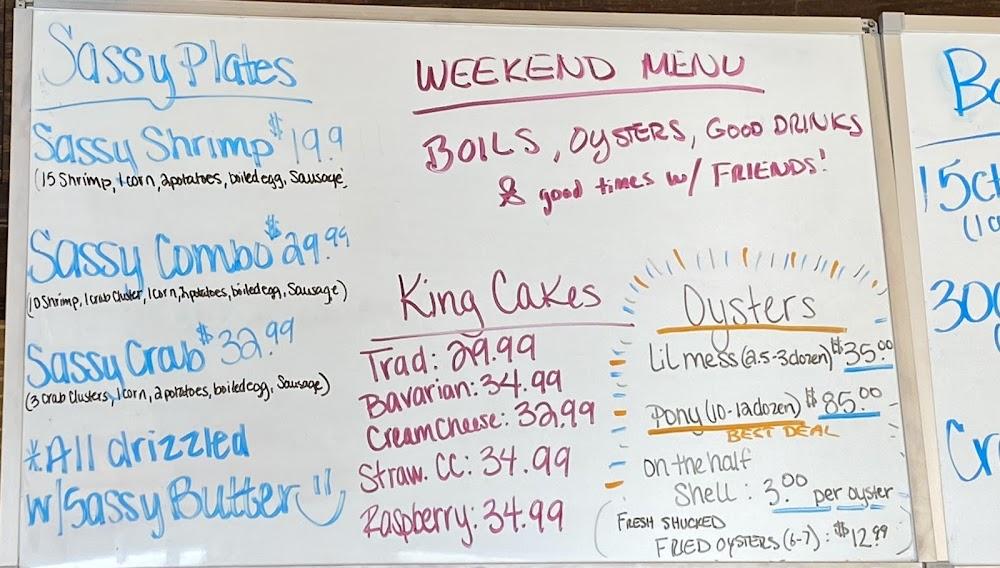 Sassy Plates
Sassy Shrimp $19.9
(15 Shrimp, 1 corn, 2 potatoes, boiled egg, Sausage,
Sassy Combo $29.99
(10 Shrimp, 1 crab cluster, 1 corn, 2 potatoes, boiled egg, Sausage)
Sassy Crab $32.99
(3 Crab Clusters, 1 corn, 2 potatoes, boiled egg, Sausage)
*All drizzled
w/ Sassy Butter
WEEKEND MENU
BOILS, OYSTERS, GOOD DRINKS
& good times w/ FRIENDS!
King Cakes
Trad: 29.99
Bavarian: 34.99
Cream Cheese: 32.99
Straw. CC: 34.99
Raspberry: 34.99
Oysters
Lil mess (2.5-3 dozen) $35.00
Pony (10-12 dozen) $85.00
BEST DEAL
on the half
Shell: 3.00 per oyster
FRESH SHUCKED
FRIED OYSTERS (6-7): $12.99
15ct